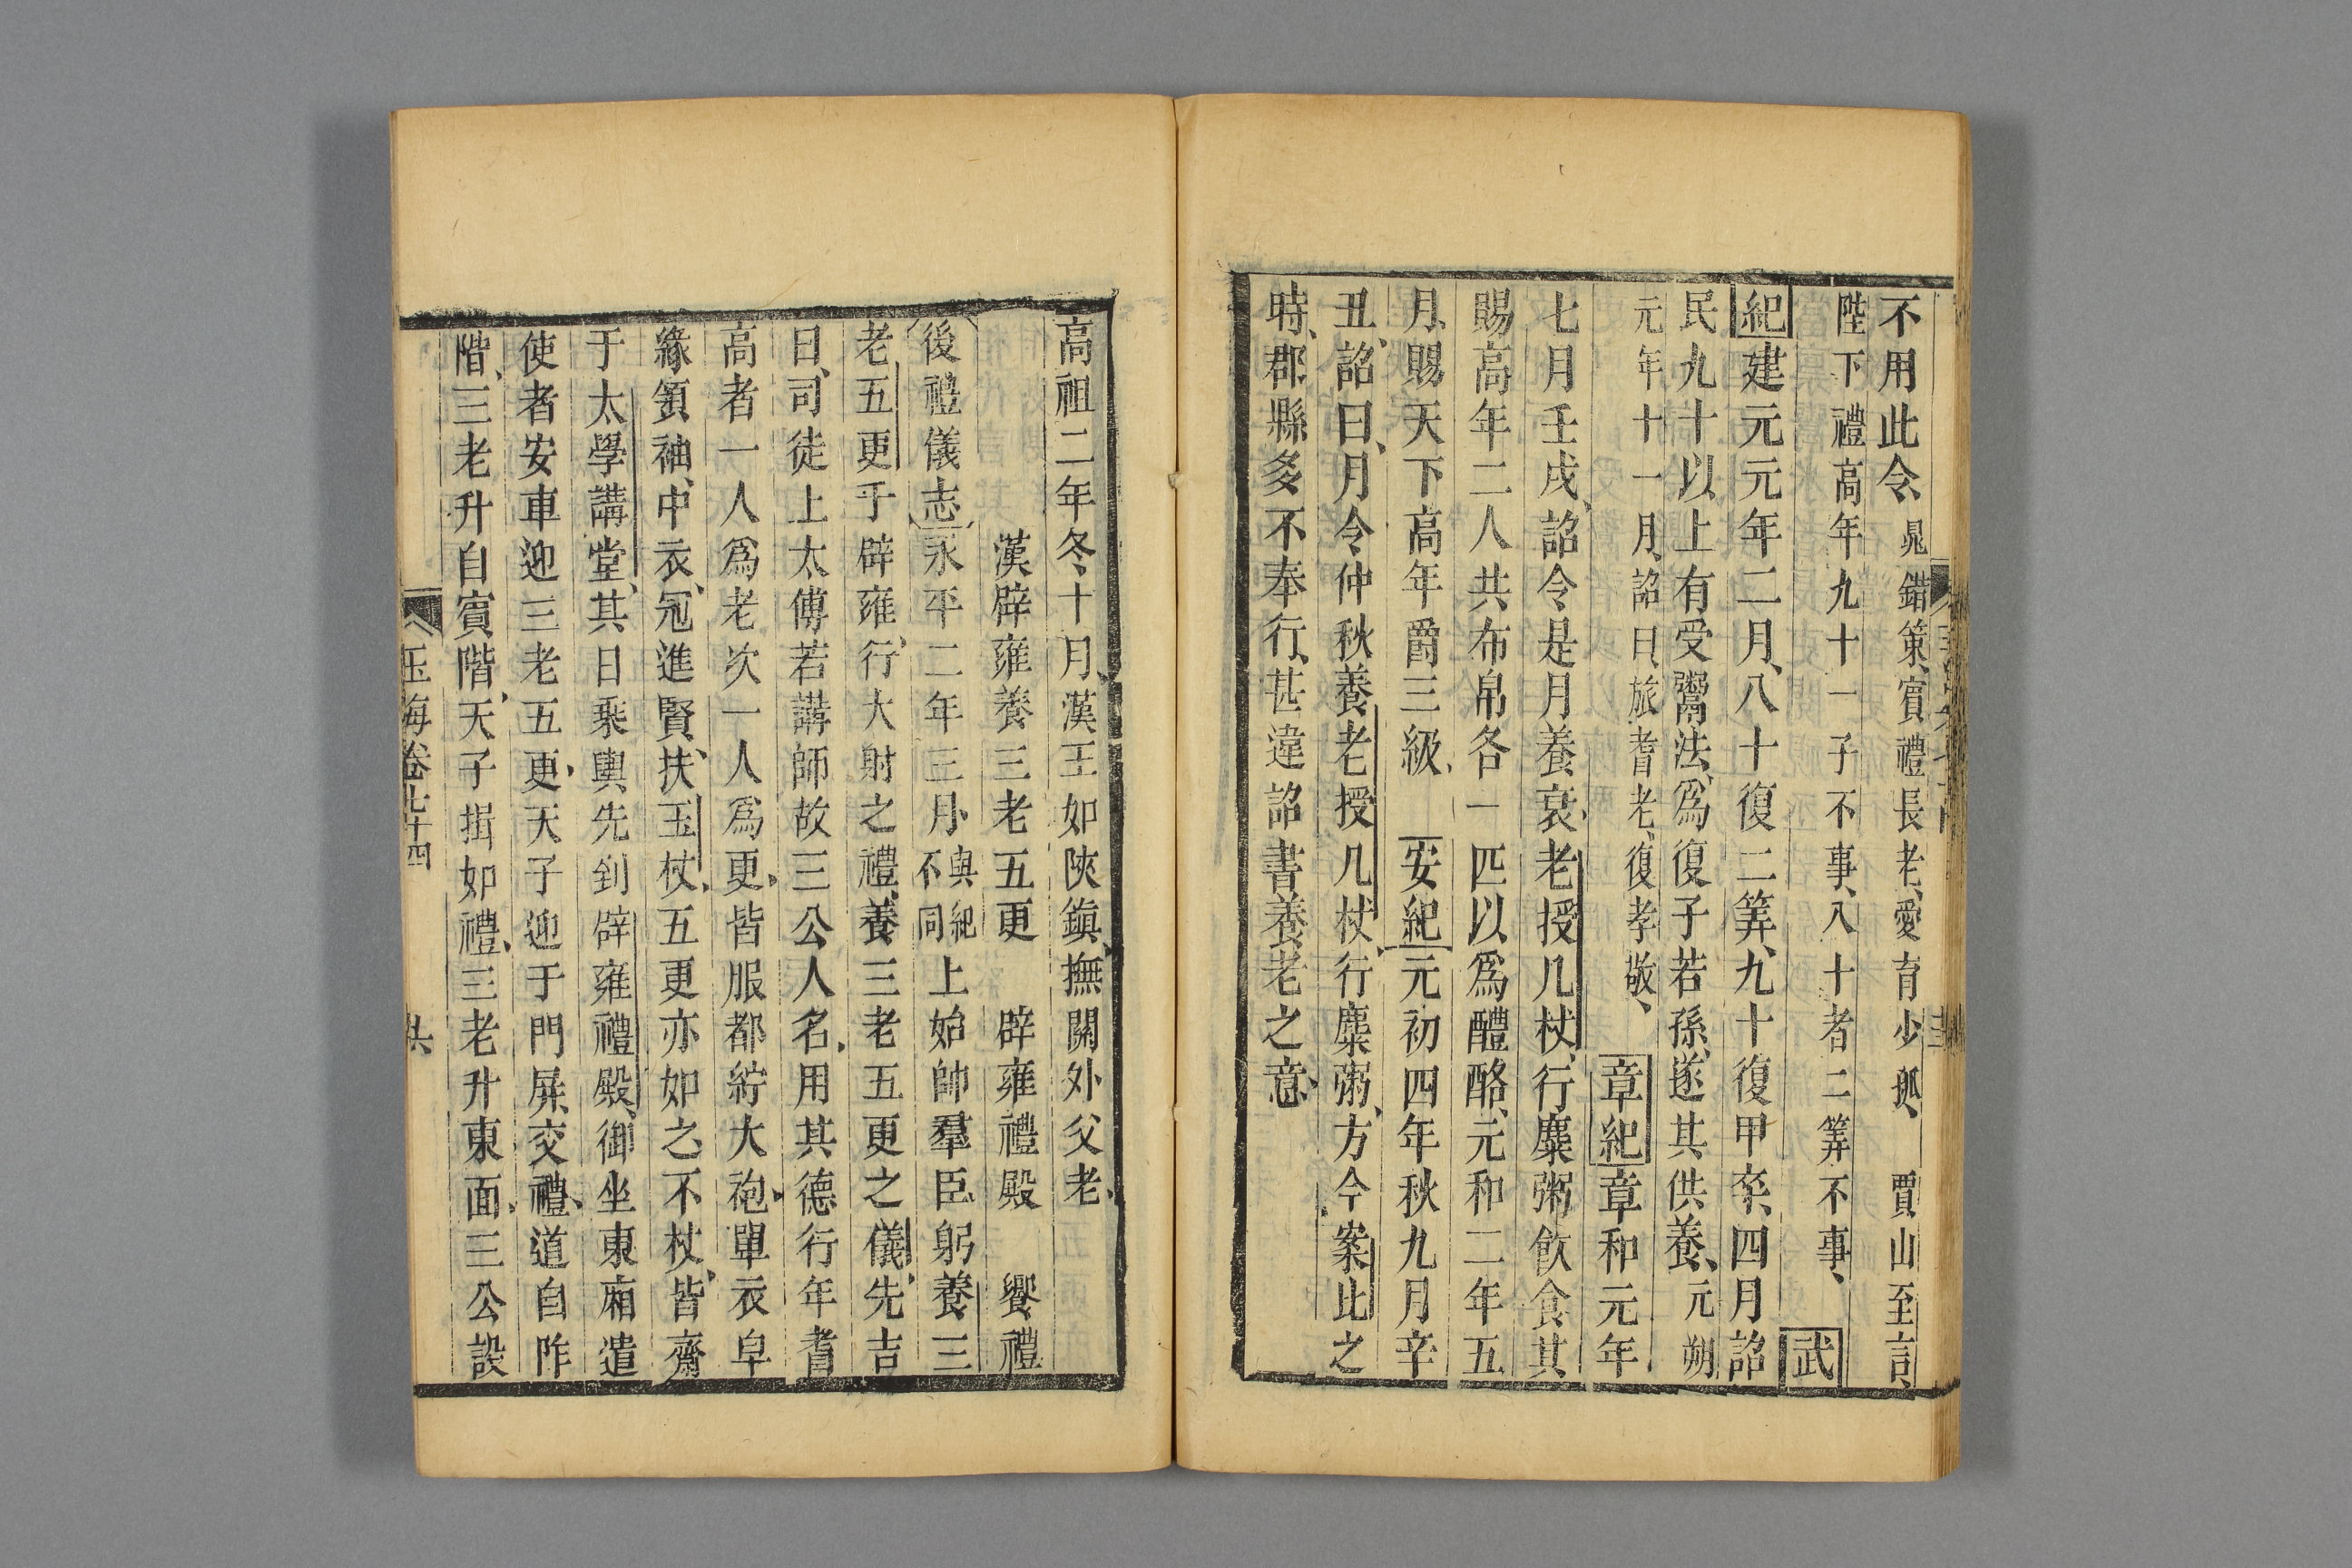 不用此令、晁錯策、賓禮長老、愛育少孤、 賈山至言、
陛下禮高年九十一子不事、八十者二筭不事、 武
紀建元元年二月、八十復二筭、九十復甲卒、四月詔
民九十以上有受鬻法、爲復子若孫、遂其供養、元朔
元年十一月、詔曰、旅耆老、復孝敬、 章紀章和元年
七月壬戌、詔令是月養衰老授几杖、行麋粥飲食其
賜高年二人共布帛各一匹以爲醴酪、元和二年五
月、賜天下高年爵三級、 安紀元初四年秋九月辛
丑、詔曰、月令仲秋養老授几杖、行麋粥、方今案此之
時、郡縣多不奉行、甚違詔書養老之意、
高祖二年冬十月、漢王如陝鎭、撫關外父老、
漢辟雍養三老五更 辟雍禮殿 饗禮
後禮儀志永平二年三月、與紀不同上始帥羣臣、躬養三
老五更于辟雍、行大射之禮、養三老五更之儀、先吉
日、司徒上太傅若講師故三公人名、用其德行年耆
高者一人爲老次一人爲更、皆服都紵大袍、單衣皁
緣領袖、中衣、冠進賢、扶玉杖、五更亦如之、不杖、皆齋
于太學講堂、其日乘輿先到辟雍禮殿、御坐東廂遣
使者安車迎三老五更、天子迎于門屏、交禮、道自阼
階、三老升自賓階、天子揖如禮、三老升東面、三公設
玉海卷七十四